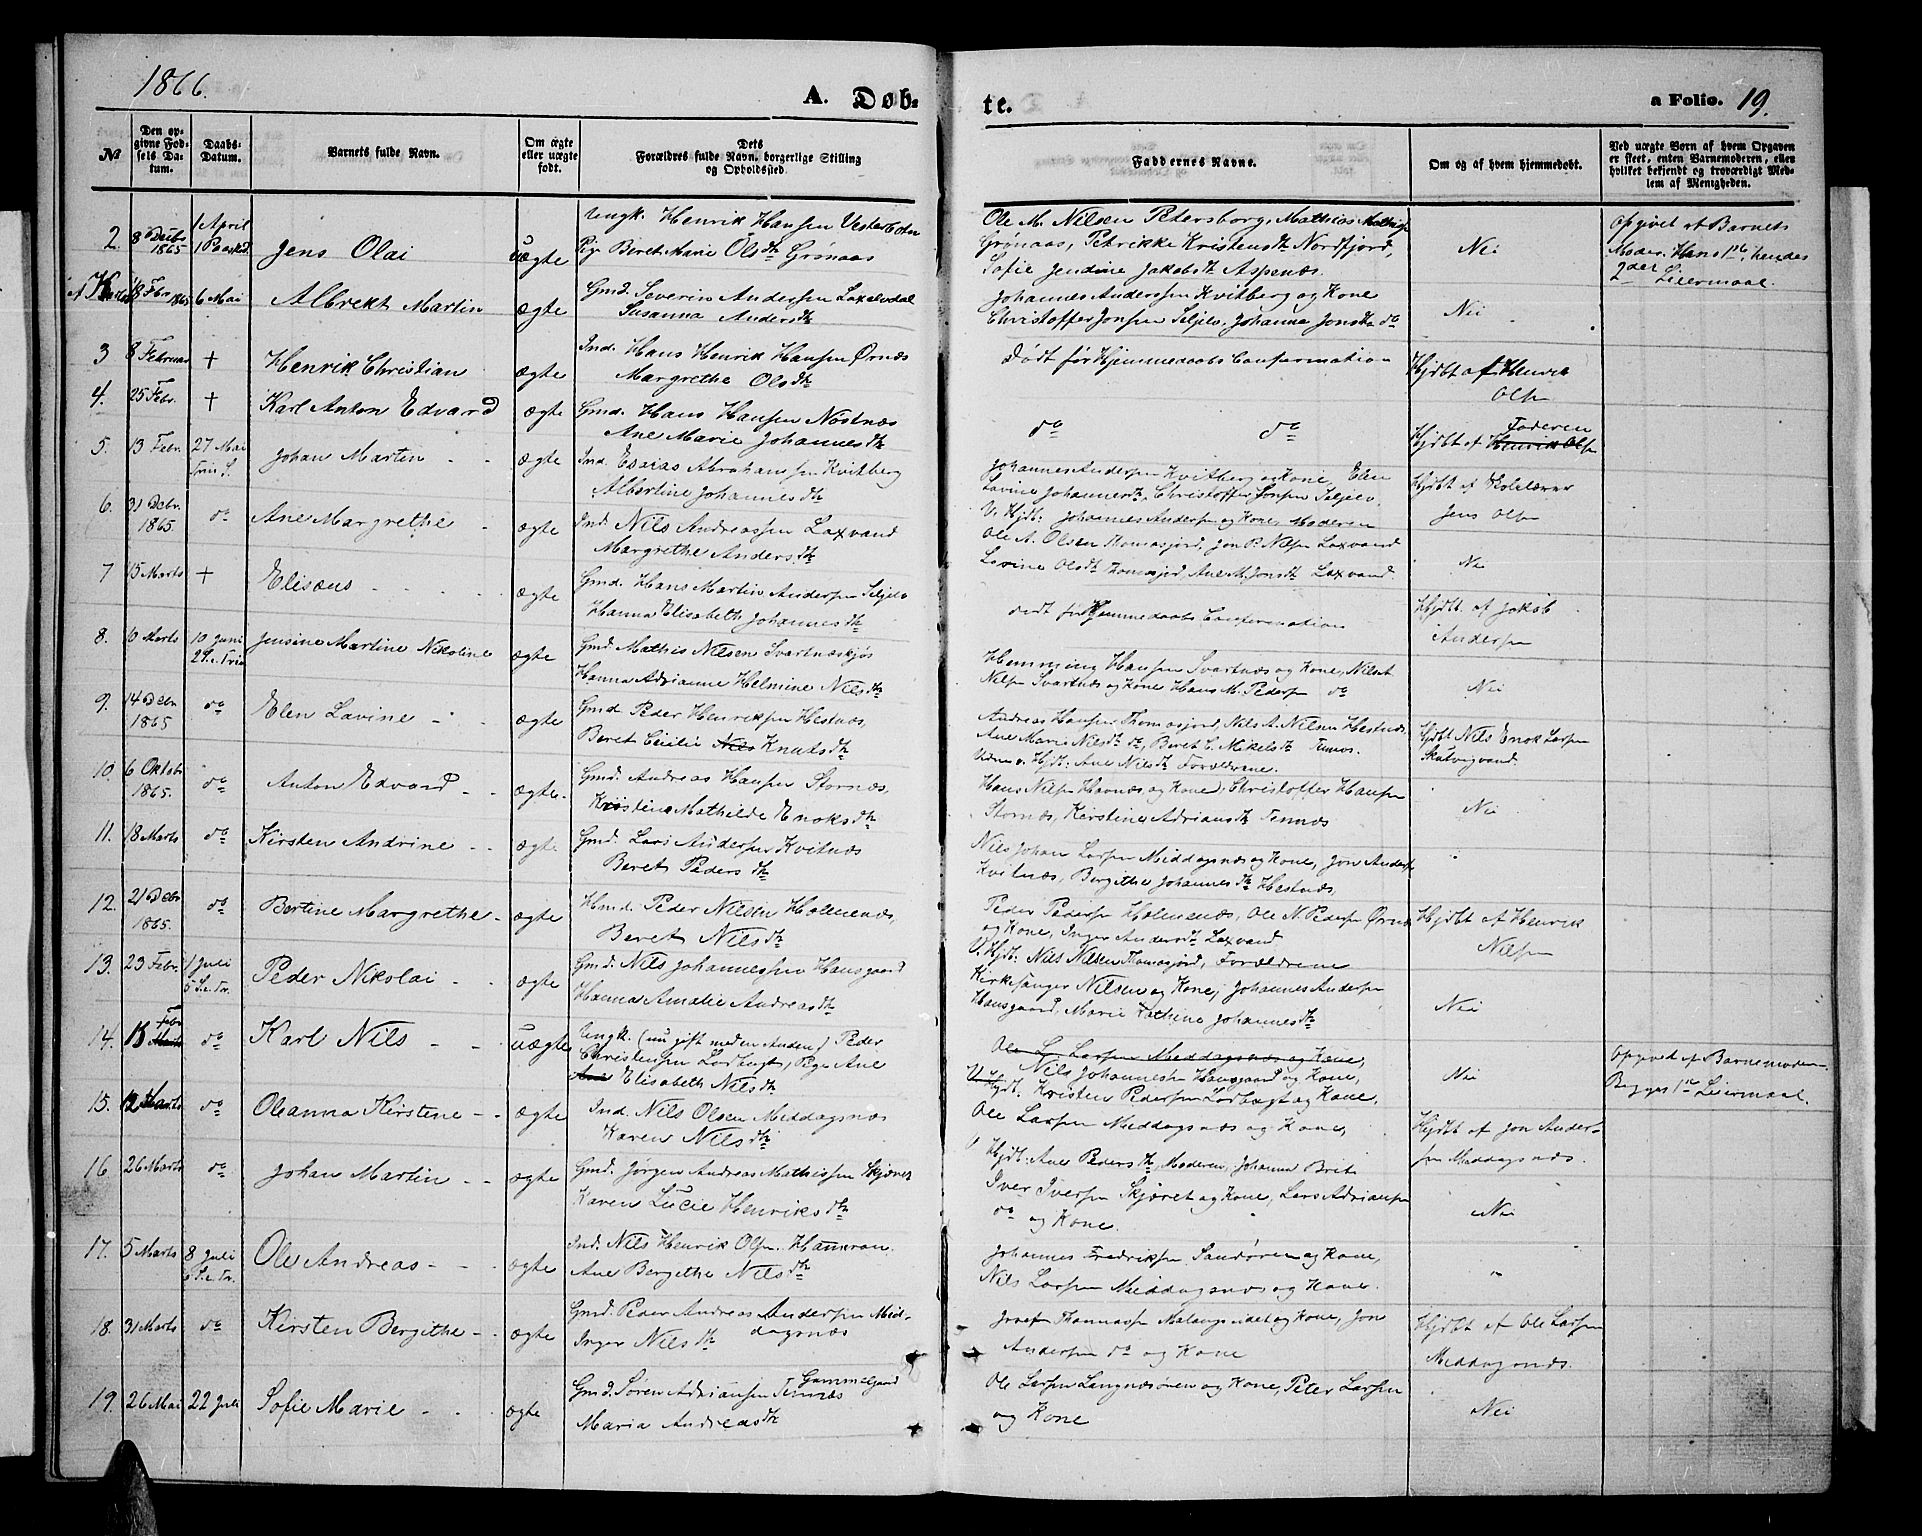 1866.
A. Døb-
te.
a Folio. 19.
№
Den op-
givne Fød-
sels Da-
tum.
Daabs-
Datum.
Barnets fulde Navn.
Om ægte
eller uægte
født.
Dets
Forældres fulde Navn, borgerlige Stilling
og Opholdssted.
Faddernes Navne.
Om og af hvem hjemmedøbt.
Ved uægte Børn af hvem Opgaven
er skeet, enten Barnemoderen, eller
hvilket bekjendt og troværdigt Med-
lem af Menigheden.
2. 8 Debr 1865 1 April 1 Paaskd. Jens Olai uægte
Ungk. Henrik Hansen
Pige Beret Marie Olsdtr Grønaas
Ole M. Nilsen Petersborg, Mathias
Grønaas, Petrikke Kristensdtr Nordfjord,
Sofie Jendine Jakobsdtr Aspenæs.
Nei
Opgivet af Barnets
Moder. Hans 1ste, hendes
2det Leiermaal.
18 Febr 1865 6 Mai Albrekt Martin ægte
Gmd. Severin Andersen Laxelvdal
Susanna Andersdtr
Johannes Andersen Kvitberg og Kone
Christoffer Jonsen Seljelv, Johanna Jonsdtr do
Nei
3 8 Februar + Henrik Christian ægte
Ind. Hans Henrik Hansen Ørnæs
Margrethe Olsdtr
Dødt før Hjemmedaabs Confirmation
Hjdbt af Henrik
Olsen
4. 25 Febr. + Karl Anton Edvard ægte
Gmd. Hans Hansen Nøstnæs
Ane Marie Johannesdtr
do do
Faderen
Hjdbt af Henrik Olsen
5. 13 Febr. 27 Mai Trin. S. Johan Martin ægte
Ind. Esaias Abrahamsen Kvitberg
Albertine Johannesdtr
Johannes Andersen Kvitberg og Kone, Elen
Lavine Johannesdtr, Christoffer Jonsen Seljelv,
V. Hjdt: Johannes Andersen og Kone, Moderen
Hjdbt af Skolelærer
Jens Olsen
6. 31 Debr. 1865 do Ane Margrethe ægte
Ind. Nils Andreassen Laxvand
Margrethe Andersdtr
Ole A. Olsen Thomasjord, Jon P. Nilsen Laxvand
Lavine Olsdtr Thomasjord, Ane M. Jonsdtr Laxvand.
Nei
7 15 Marts + Elisæus ægte
Gmd. Hans Martin Andersen Seljelv
Hanna Elisabeth Johannesdtr
død før Hjemmedaabs Confirmation
Hjdbt. af Jakob
Andersen
8. 6 Marts 10 Juni 2 S. e. Trin Jensine Martine Nikoline ægte
Gmd. Mathis Nilsen Svartnæskjøs
Hanna Adrianne Helmine Nilsdtr
Hemming Hansen Svartnæs og Kone, Nils
Nilsen Svartnæs og Kone Hans M. Pedersen do
Nei
9. 14 Debr 1865 do Elen Lavine ægte
Gmd. Peder Henriksen Hestnæs
Beret Cicilie Nils Knutsdtr
Andreas Hansen Thomasjord, Nils A. Nilsen Hestnæs,
Ane Marie Nilsdtr do, Beret C. Mikelsdtr Tennæs.
Vidner v. Hjdt: Ane Nilsdtr Forældrene.
Hjdbt Nils Enok Larsen
Skutvigvand.
10. 6 Oktobr 1865. do Anton Edvard ægte.
Gmd. Andreas Hansen Stornæs,
Kristine Mathilde Enoksdtr
Hans Nilsen Havnæs og Kone, Christoffer Hansen
Stornæs, Kirstine Adriansdtr Tennæs
Nei
11. 18 Marts do Kirsten Andrine ægte
Gmd. Lars Andersen Kvitnæs
Beret Pedersdtr
Nils Johan Larsen Middagsnæs og Kone, Jon Andersen
Kvitnæs, Bergithe Johannesdtr Hestnæs.
"
12. 21 Debr 1865. do Bertine Margrethe ægte
Hmd. Peder Nilsen Holmenæs,
Beret Nilsdtr
Peder Pedersen Holmenæs, Ole N. Pedersen Ørnæs
og Kone, Inger Andersdtr Laxvand
V. Hjdt: Nils Nilsen Thomasjord, Forældrene
Hjdbt af Henrik
Nilsen
13. 23 Febr. 1 Juli 5 S. e. Tr. Peder Nikolai ægte
Gmd. Nils Johannessen Hansgaard
Hanna Amalie Andreasdtr
Kirkesanger Nilsen og Kone, Johannes Andersen
Hansgaard, Marie Kathine Johannesdtr
Nei
14. 15 Febr do Karl Nils uægte
Ungk. (nu gift med en Anden) Peder
Christensen Lordbugt, Pige Ane
Elisabeth Nilsdtr
Ole L. Larsen Middagsnæs og Kone,
Nils Johannesen Hansgaard og Kone,
V. Hjdt. Kristen Pedersen Lordbugt og Kone.
Nei
Opgivet af Barnemoderen
Begges 1ste Leiermaal.
15. 12 Marts do Olianna Kirstene ægte
Ind. Nils Olsen Middagsnæs
Karen Nilsdtr
Ole Larsen Middagsnæs og Kone,
V Hjdt: Ane Pedersdtr, Moderen, Johanna Brit
Hjdbt af Jon Ander-
sen Middagsnæs.
16. 26 Marts do Johan Martin ægte
Gmd. Jørgen Andreas Mathissen Skjæret
Karen Lucie Henriksdtr
Iver Iversen Skjæret og Kone, Lars Adriansen
do og Kone.
Nei
17. 5 Marts 8 Juli 6 S. e. Tr. Ole Andreas ægte
Ind. Nils Henrik Olsen Hamran
Ane Bergithe Nilsdtr
Johannes Fredriksen Sandøren og Kone,
Nils Larsen Middagsnæs og Kone.
"
18. 31 Marts do Kirsten Bergithe ægte
Gmd. Peder Andreas Andersen Mid-
dagsnæs
Inger Nilsdtr
Josef Thomassen Malangseidet og Kone, Jon
Andersen do og Kone
Hjdbt af Ole Larsen
Middagsnæs.
19. 26 Mai 22 Juli Sofie Marie ægte
Gmd. Søren Adriansen Tennæs Gammelgaard
Maria Andreasdtr
Ole Larsen Langnæsøren og Kone, Peter Larsen
og Kone
Nei